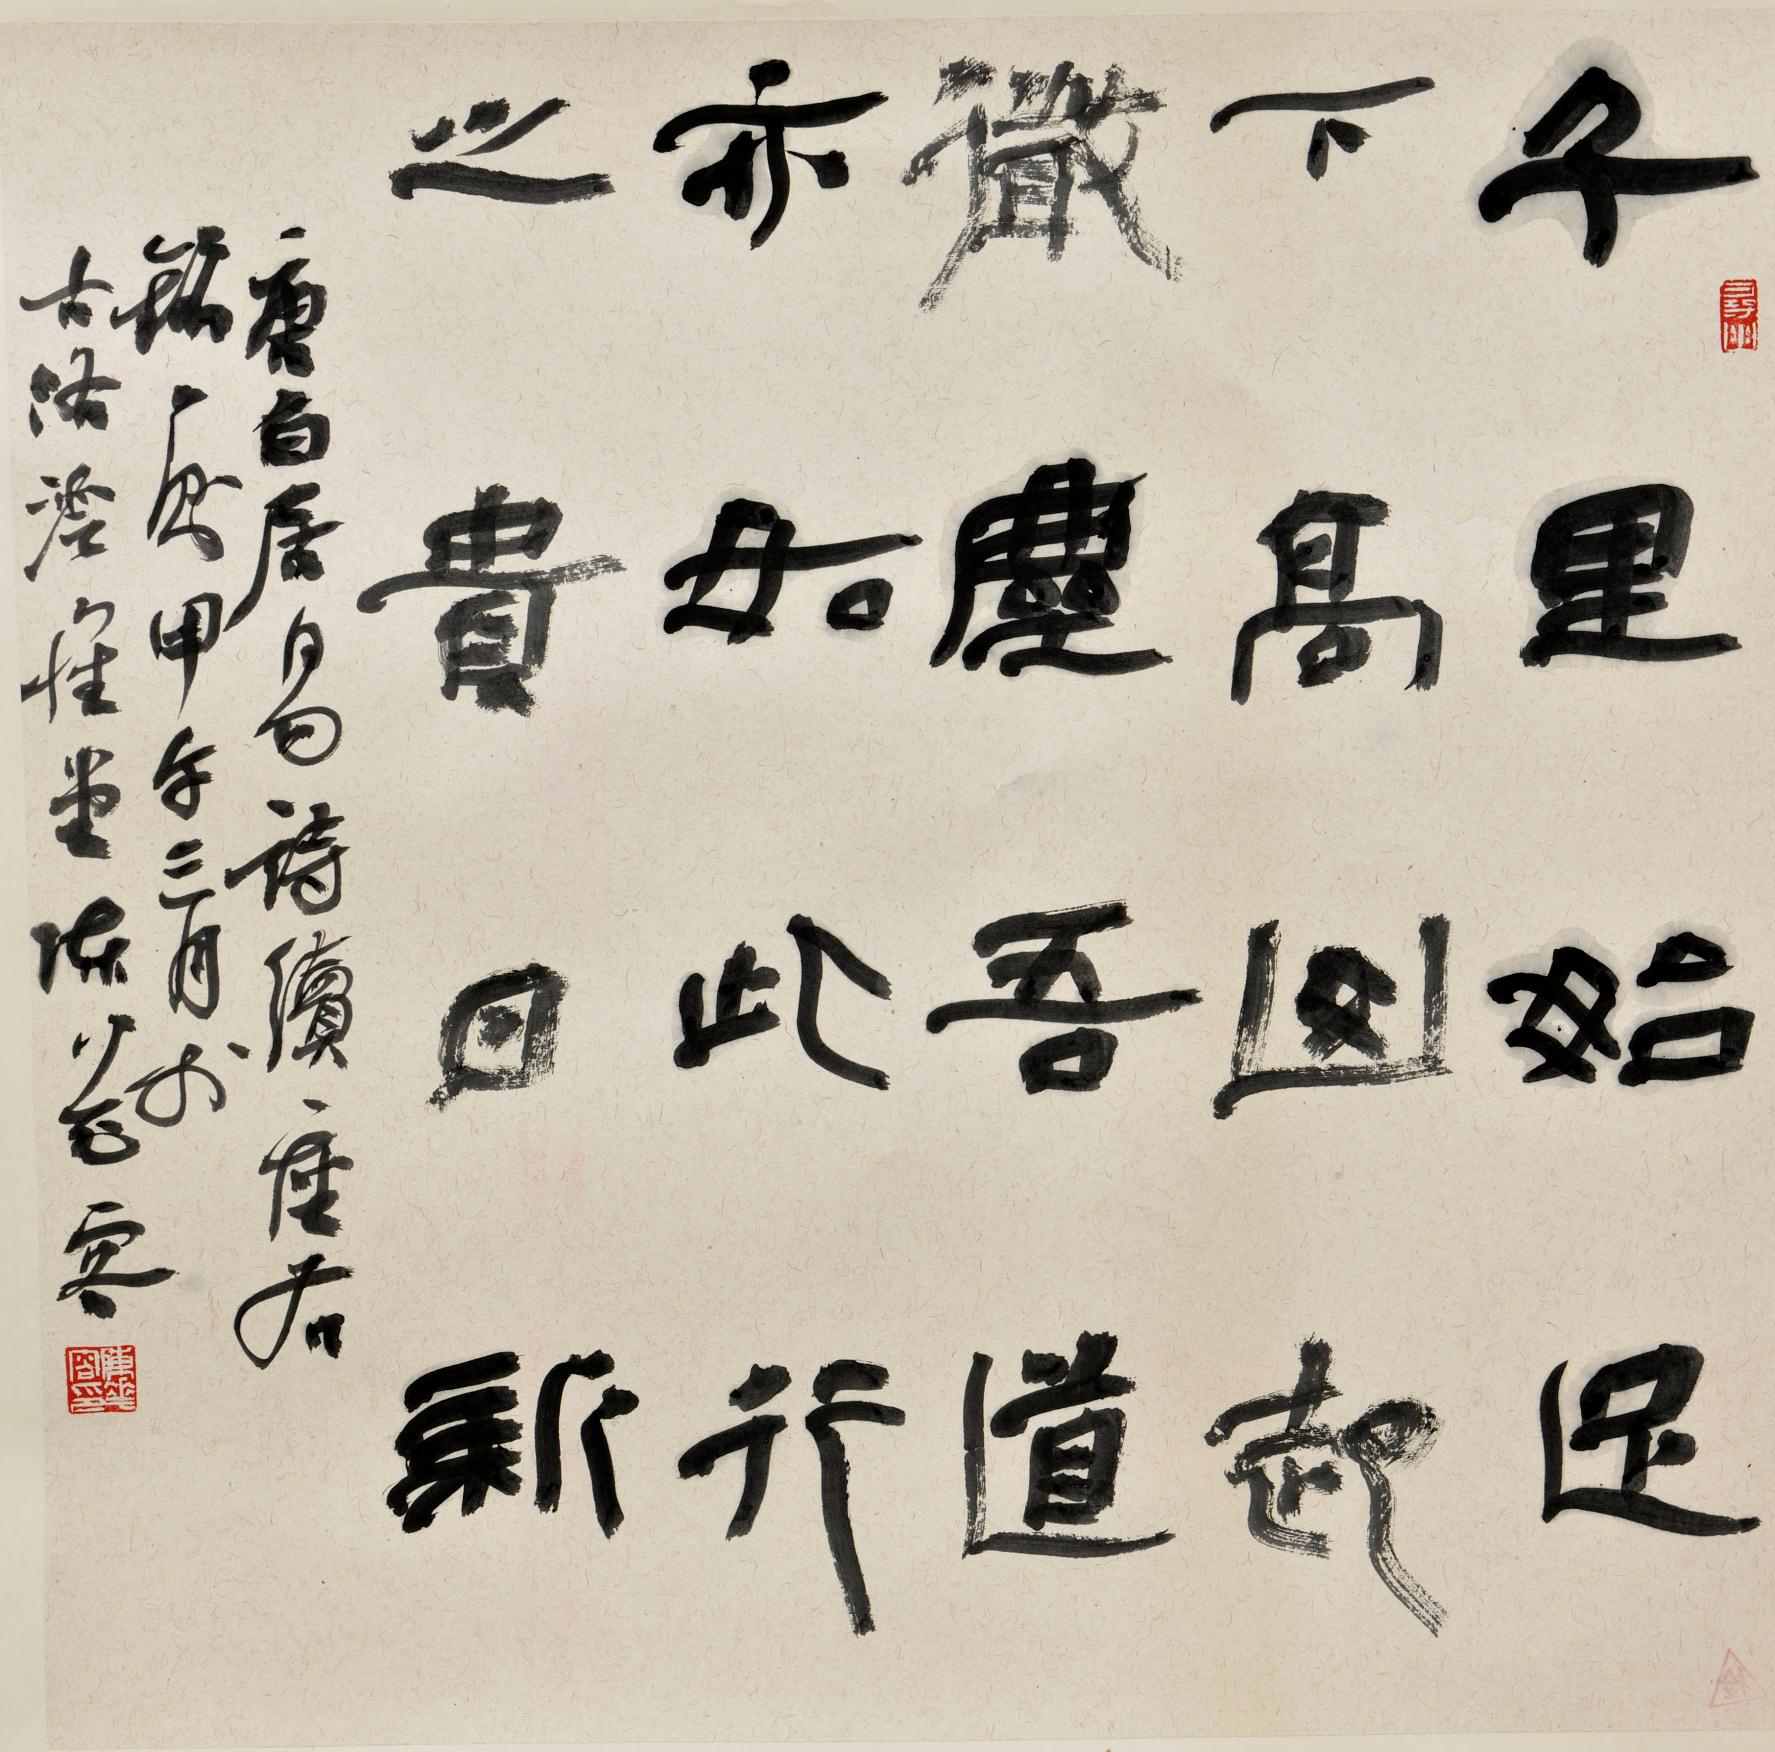 千里始足
下高山起
微塵吾道
亦如此行
之貴日新
唐白居易詩續座右
銘一則甲午三月於
古洛澄懷堂陳花容
陳花容印